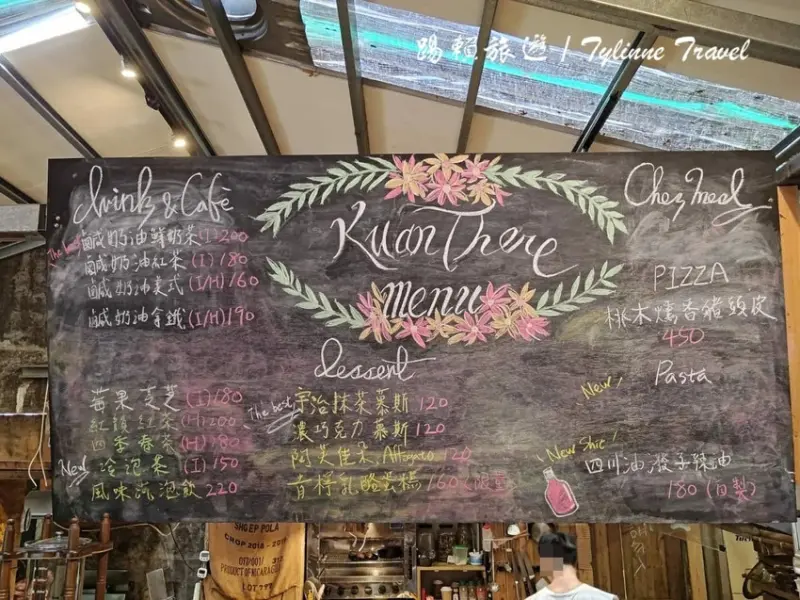 踢賴旅遊 / Tylinne Travel
Drink & Café
The best 鹹奶油鮮奶茶 (I) 200
鹹奶油紅茶 (I) 180
鹹奶油美式 (I/H) 160
鹹奶油拿鐵 (I/H) 190
莓果 (I) 180
紅茶 (H) 200
四季春茶 (H) 180
New 冷泡茶 (I) 150
風味氣泡飲 220
KuanThere
menu
dessert
The best 宇治抹茶慕斯 120
濃巧克力慕斯 120
阿芙佳朵 Affogato 120
青檸乳酪蛋糕 160 (限量)
Chez meal
PIZZA
桃木燻香豬頭皮
450
New!
Pasta
New Shit!
四川油潑子辣油
180 (自製)
SHG EP POLA
CROP 2018 - 2019
PRODUCT OF NICARAGUA